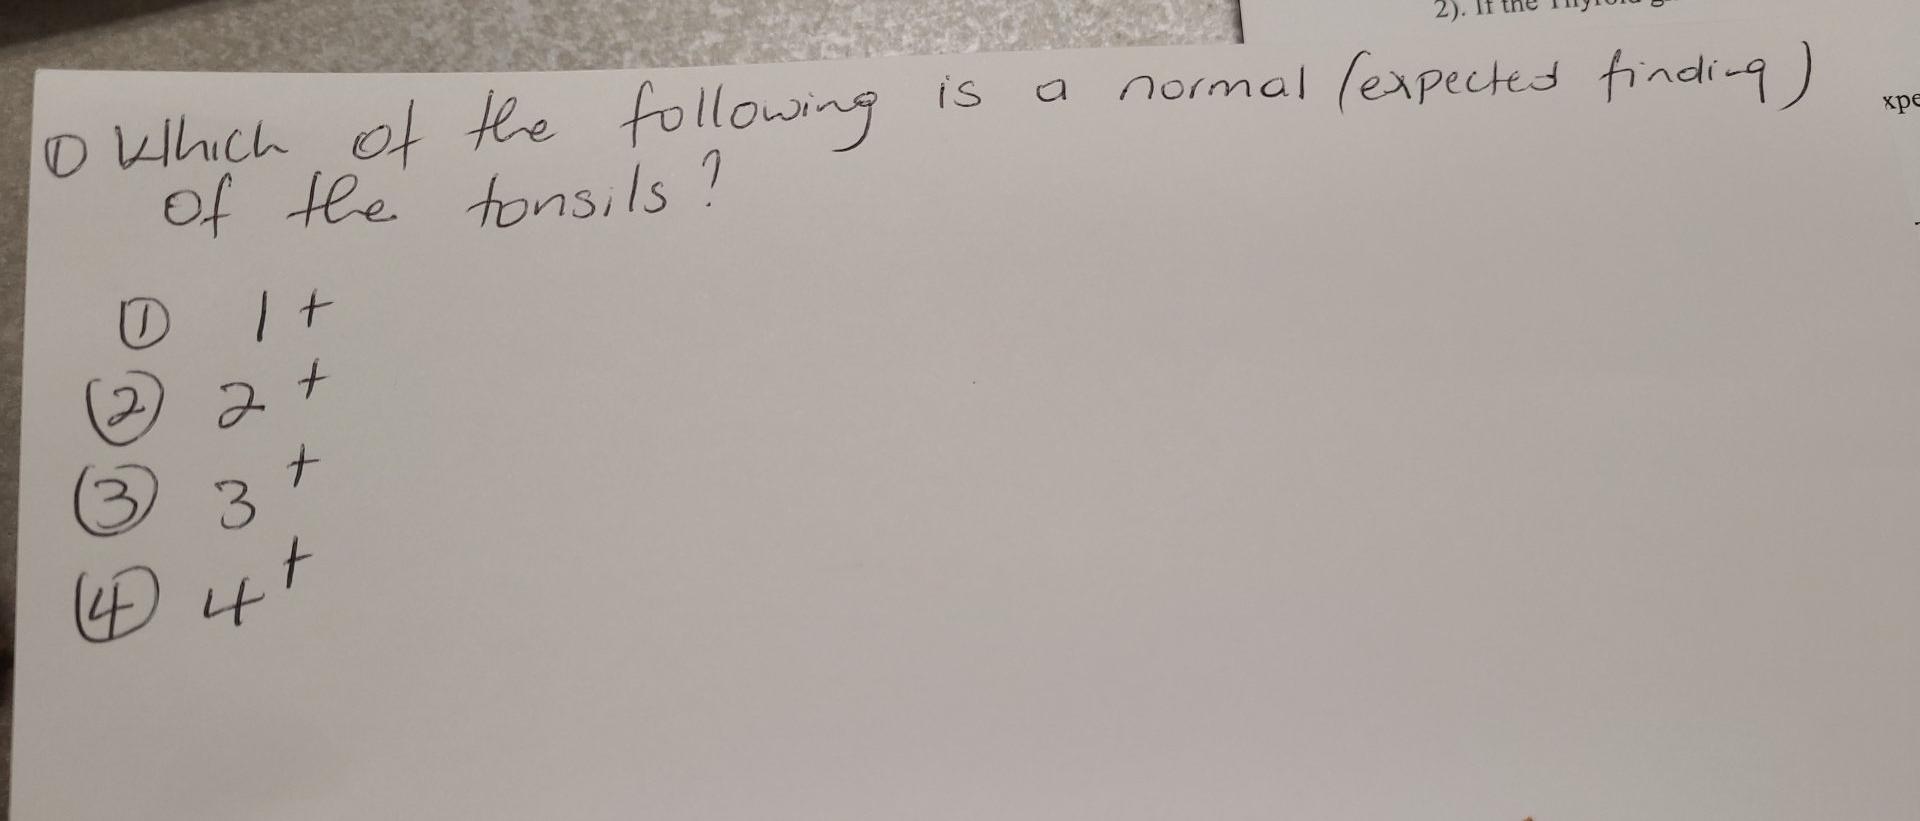 2). If the Thyroid g
① Which of the following is a normal (expected finding)
of the tonsils?
xpe
① 1+
② 2+
③ 3+
④ 4+